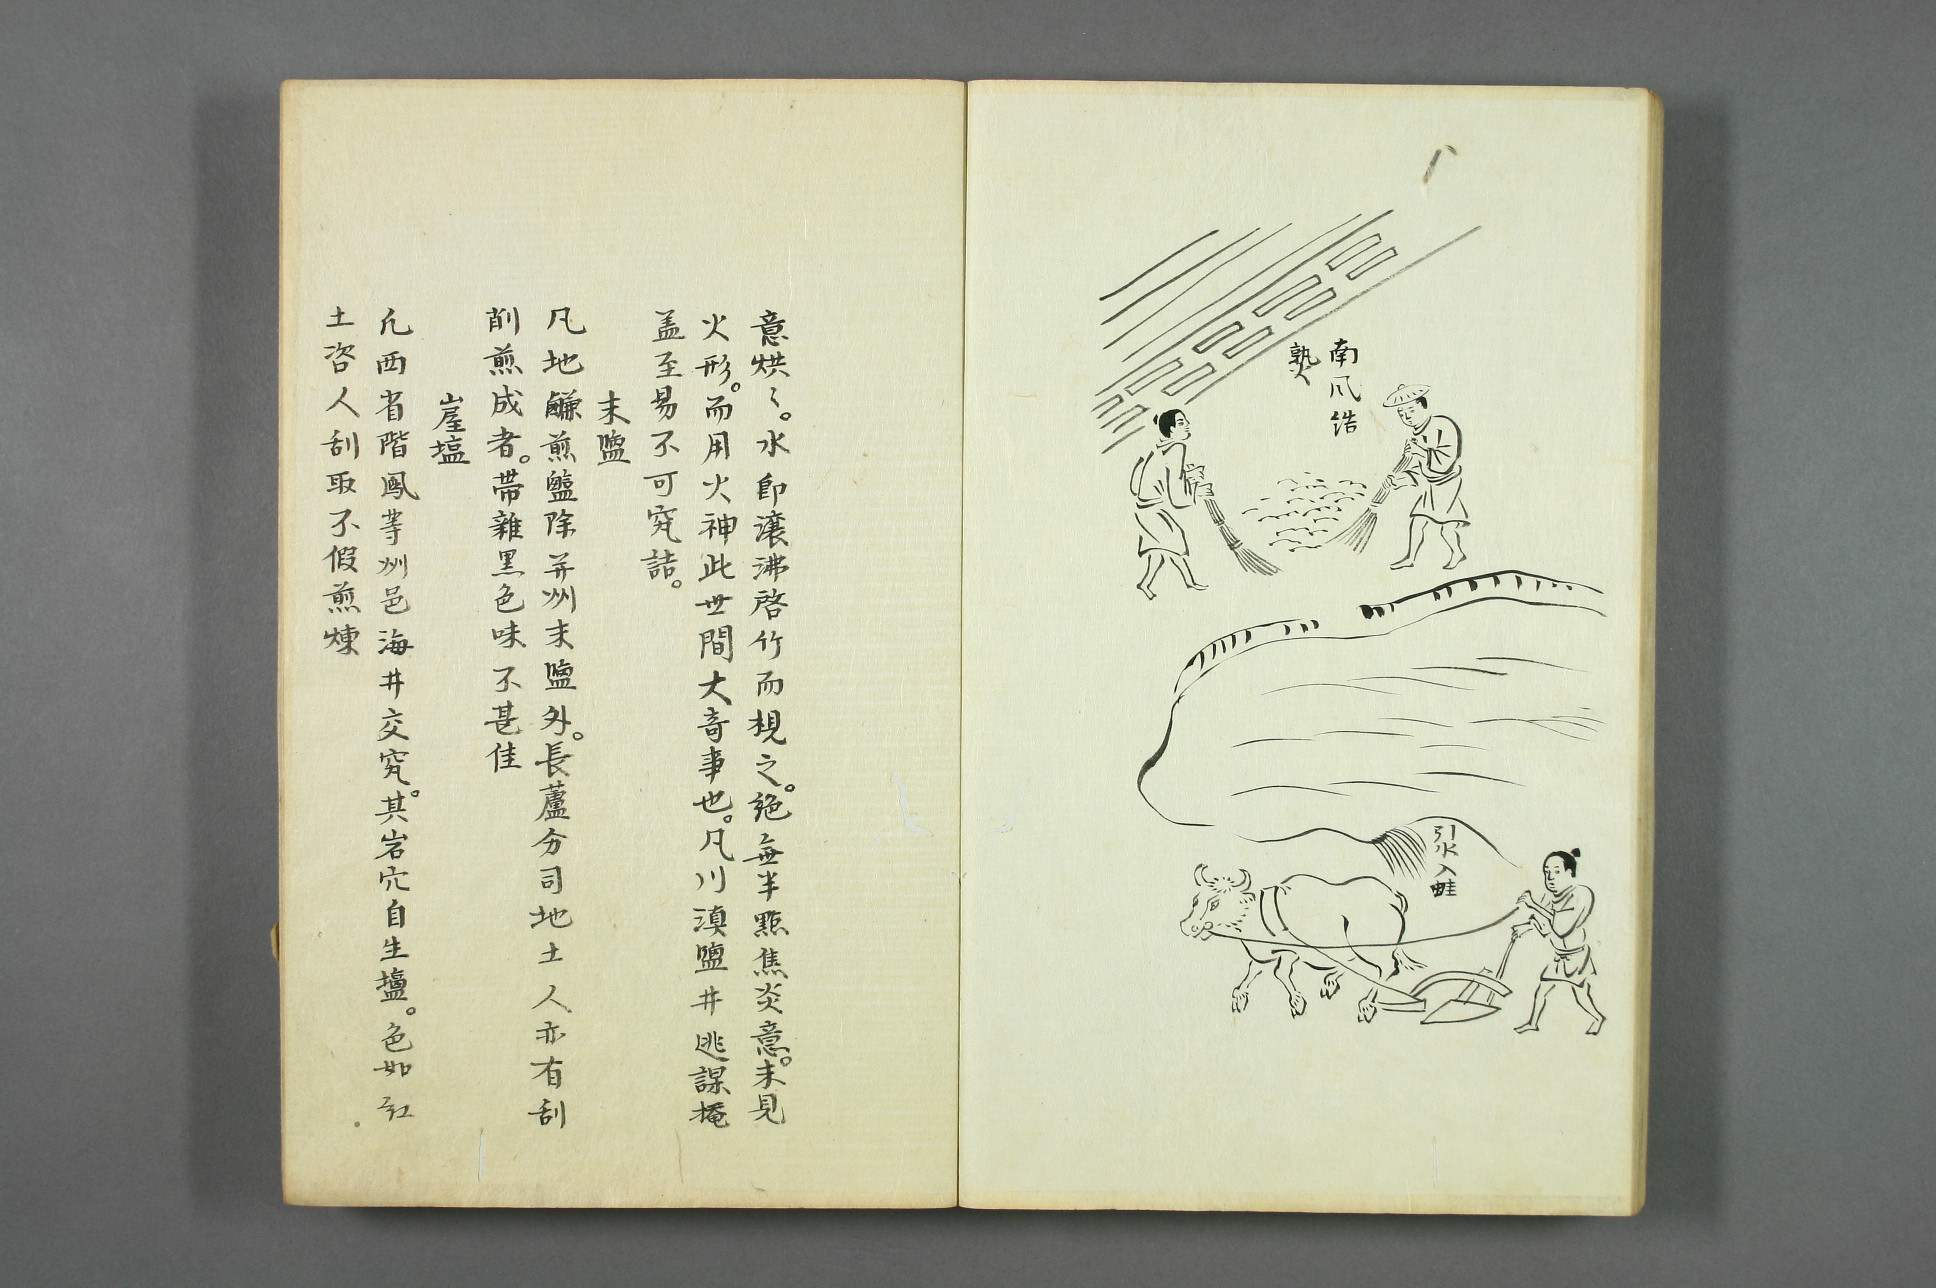 南風結
熟
引水入畦
意烘〻。水即滾沸啓竹而視之。絶無半點焦炎意。未見
火形。而用火神此世間大奇事也。凡川滇鹽井逃課掩
盖至易不可究詰。
末鹽
凡地鹻煎鹽除并州末鹽外。長蘆分司地土人亦有刮
削煎成者。帶雜黑色味不甚佳
崖塩
凡西省階鳳等州邑海井交窮。其岩穴自生塩。色如紅
土恣人刮取不假煎煉